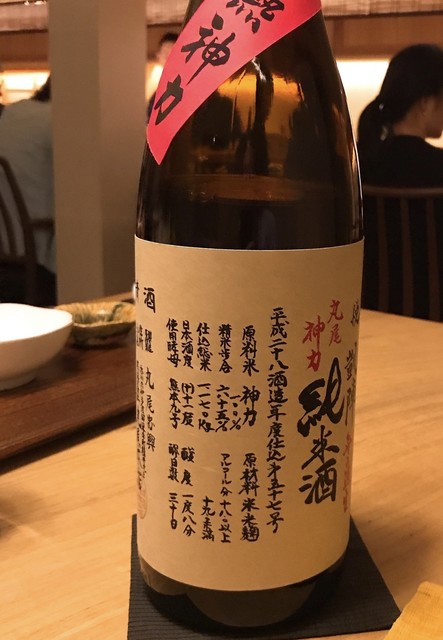 神力
凱陣
丸尾
神力
純米酒
平成二十八酒造年度仕込第五十七号
原料米 神力 原材料米米麹
精米歩合 六十五% アルコール分十八以上
十九未満
仕込総米 一一二〇kg
日本酒度 (+)十一度 酸度 一度八分
使用酵母 熊本九号 醪日数 三十日
丸尾忠興